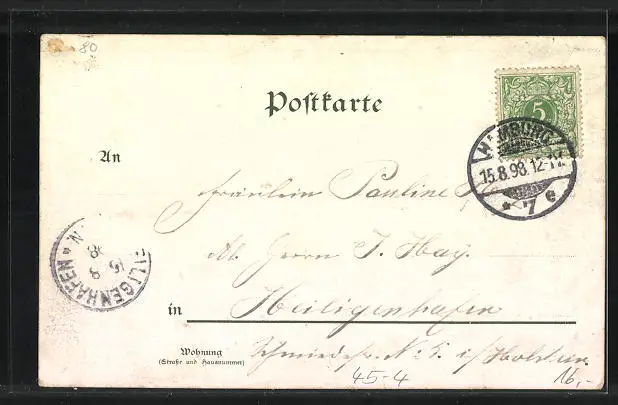 80
Postkarte
5
HAMBURG
15.8.98.12-1N.
* 7 e
An
Fräulein Pauline
Herrn J. Hay.
HEILIGENHAFEN
15 8 98
in Heiligenhafen
Wohnung
(Straße und Hausnummer)
Schmiedestr. No. 5. i/Holstein.
45-4
16.-